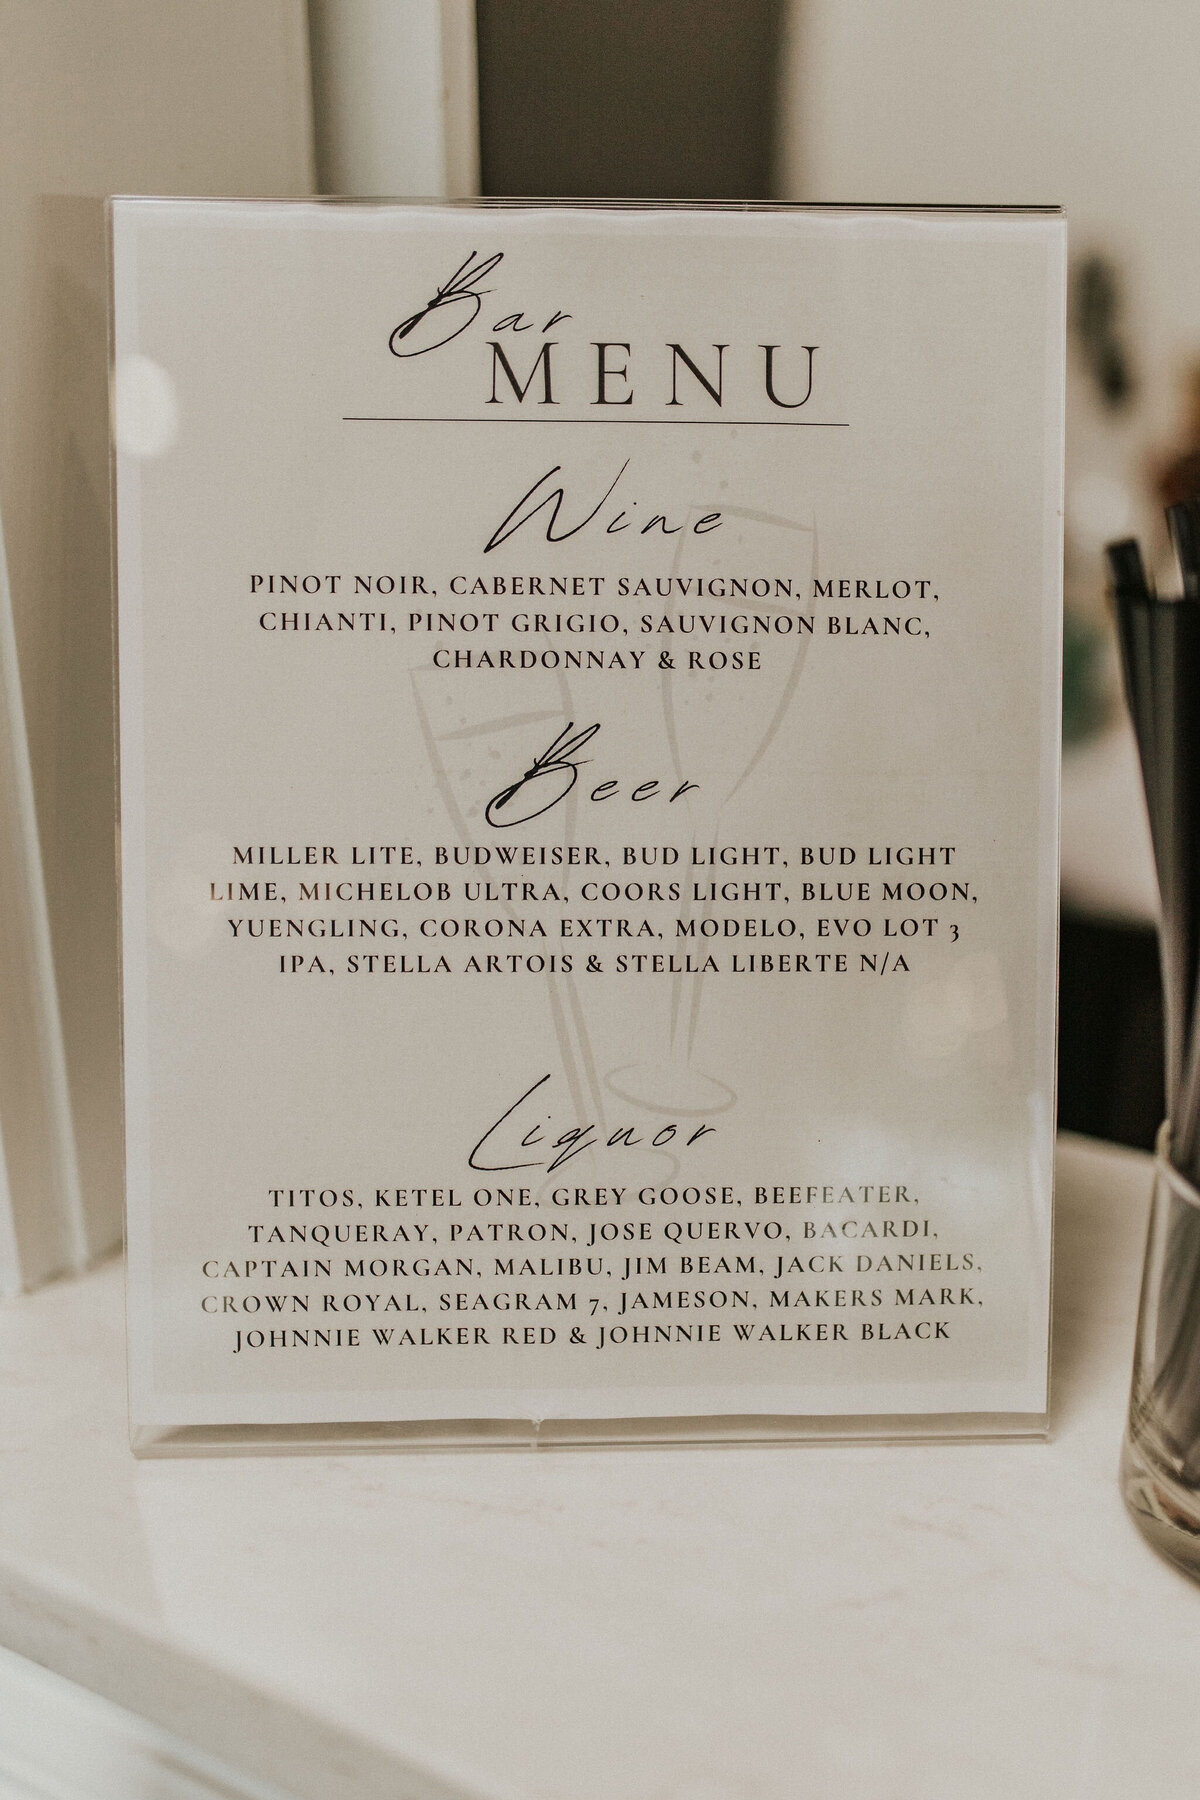 Bar
MENU
Wine
PINOT NOIR, CABERNET SAUVIGNON, MERLOT,
CHIANTI, PINOT GRIGIO, SAUVIGNON BLANC,
CHARDONNAY & ROSE
Beer
MILLER LITE, BUDWEISER, BUD LIGHT, BUD LIGHT
LIME, MICHELOB ULTRA, COORS LIGHT, BLUE MOON,
YUENGLING, CORONA EXTRA, MODELO, EVO LOT 3
IPA, STELLA ARTOIS & STELLA LIBERTE N/A
Liquor
TITOS, KETEL ONE, GREY GOOSE, BEEFEATER,
TANQUERAY, PATRON, JOSE QUERVO, BACARDI,
CAPTAIN MORGAN, MALIBU, JIM BEAM, JACK DANIELS,
CROWN ROYAL, SEAGRAM 7, JAMESON, MAKERS MARK,
JOHNNIE WALKER RED & JOHNNIE WALKER BLACK